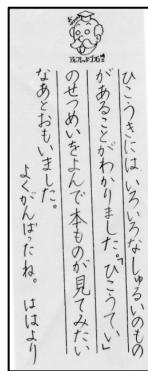 ひこうきには いろいろなしゅるいのもの
があることがわかりました。「ひこうてい」
のせつめいをよんで本ものが見てみたい
なあとおもいました。
よくがんばったね。 ははより